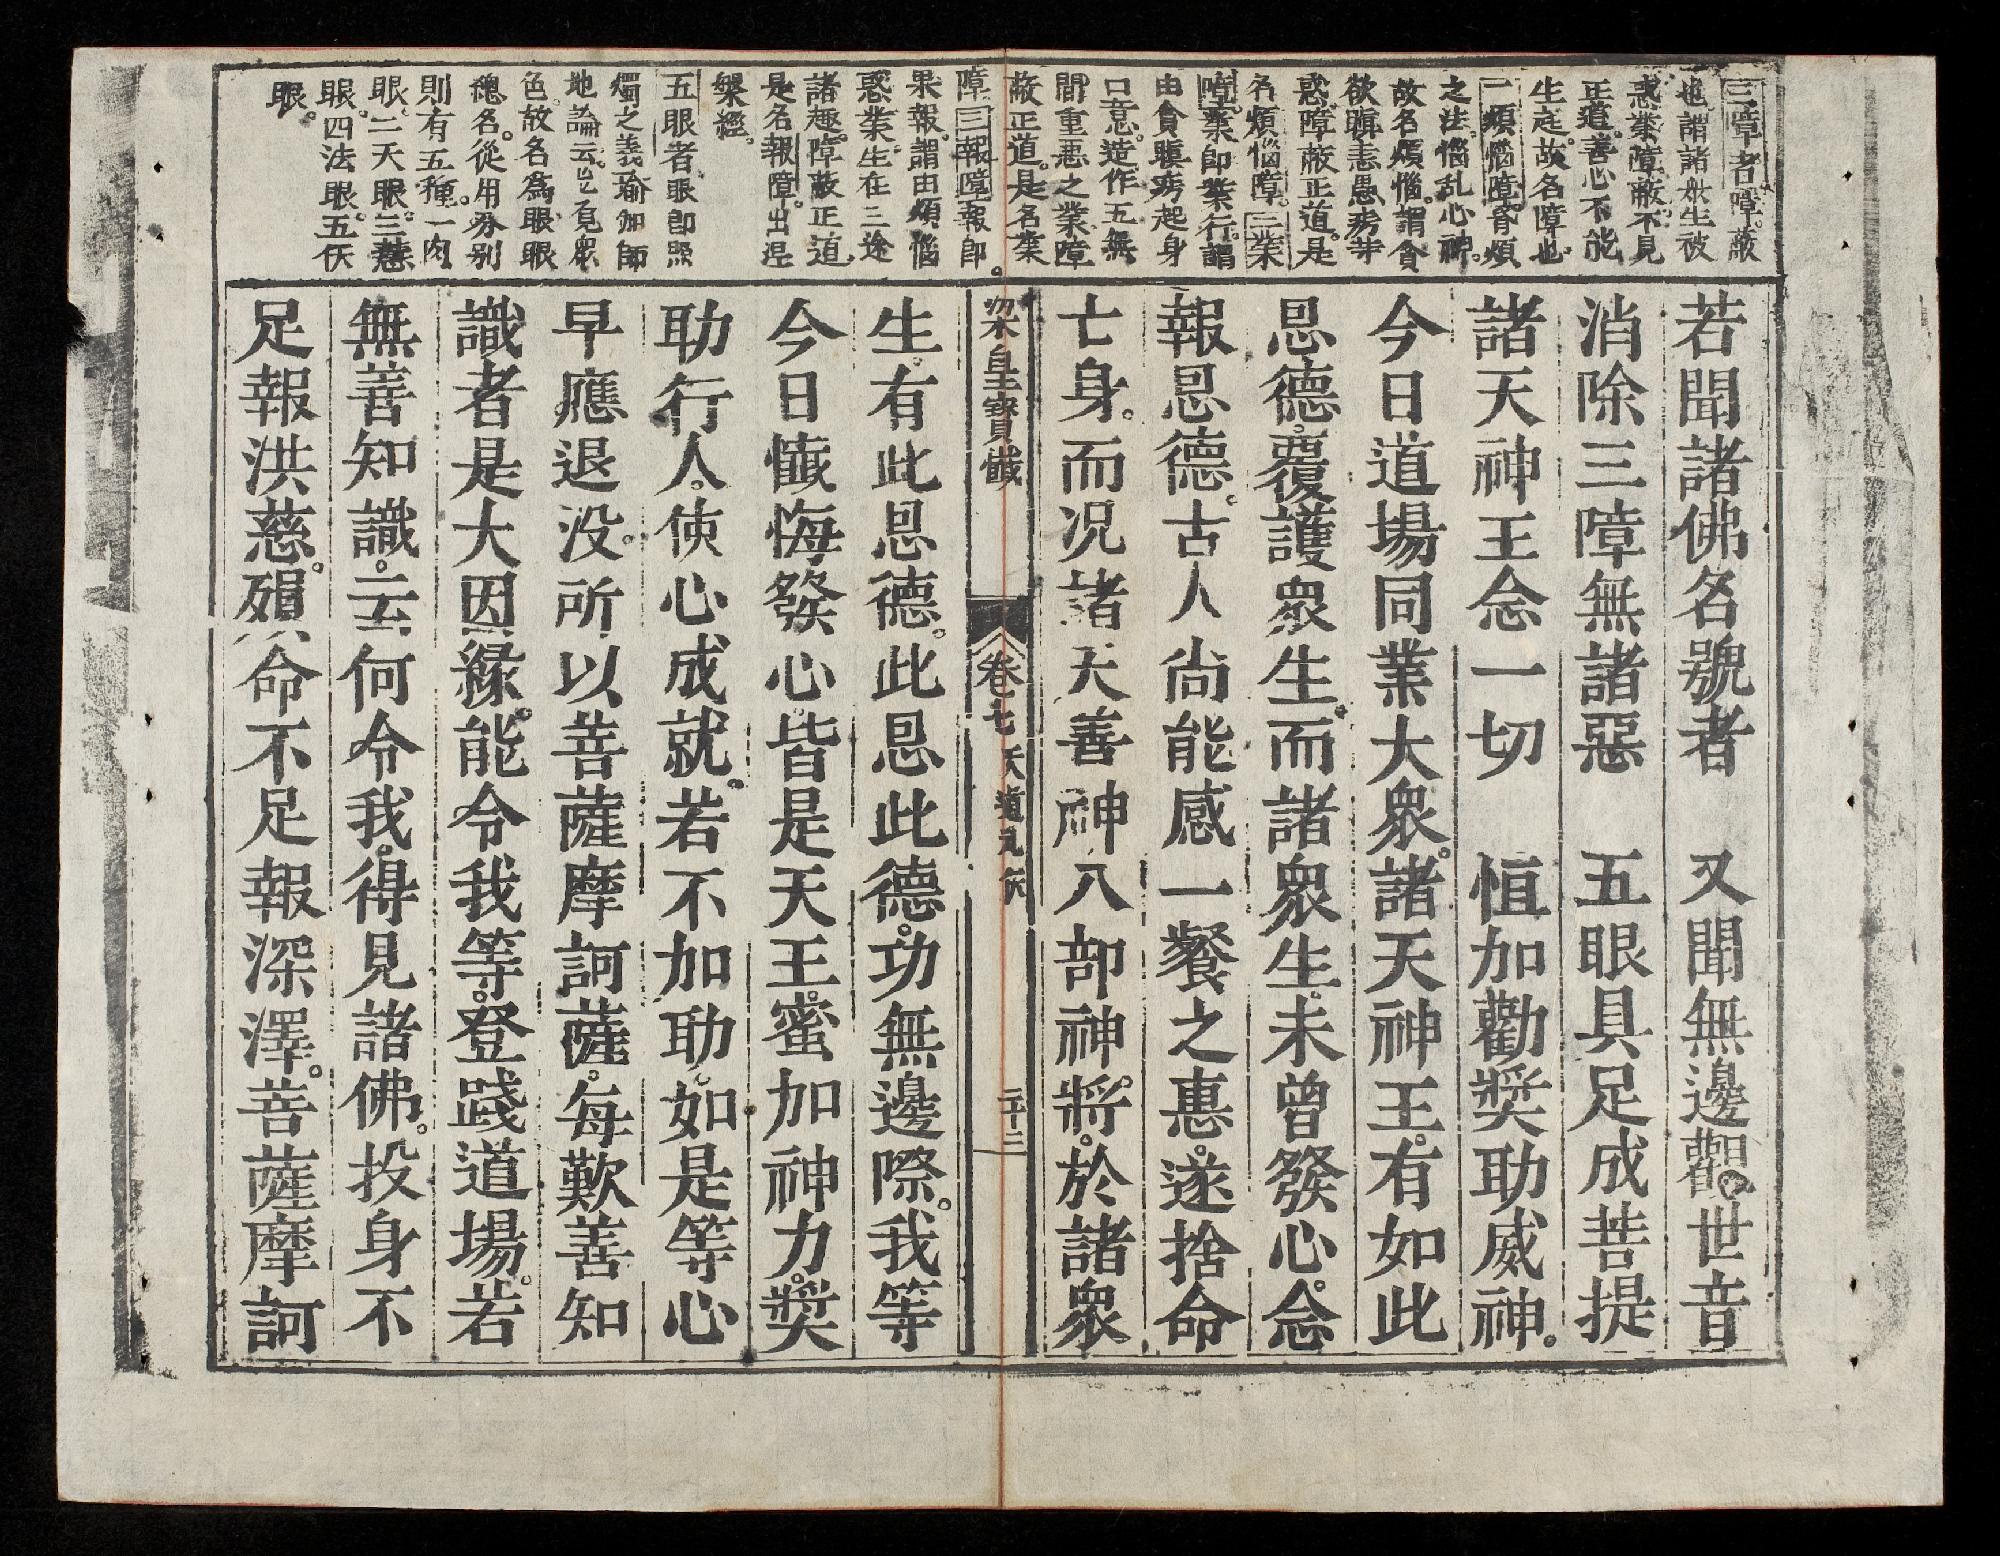 三障者障。蔽
也。謂諸衆生被
惑業障蔽不見
正道。善心不能
生起。故名障也。
一煩惱障。昏煩
之法。惱乱心神。
故名煩惱。謂貪
欲瞋恚愚痴等
惑。障蔽正道。是
名煩惱障。二業
障。業卽業行。謂
由貪瞋痴起身
口意。造作五無
間重悪之業。障
蔽正道。是名業
障。三報障。報卽
果報。謂由煩惱
惑業。生在三途
諸趣。障蔽正道。
是名報障。出涅
槃經。
五眼者眼卽照
燭之義。瑜伽師
地論云。能覔衆
色。故名爲眼。眼
總名。從用分别
則有五種。一肉
眼。二天眼。三慧
眼。四法眼。五仸
眼。
若聞諸佛名號者　又聞無邊觀世音
消除三障無諸惡　五眼具足成菩提
諸天神王念一切　恒加勸奬助威神。
今日道場同業大衆。諸天神王。有如此
恩德。覆護衆生。而諸衆生。未曾發心。念
報恩德。古人尚能感一餐之惠。遂捨命
亡身。而况諸天善神八部神將。於諸衆
梁皇寶懺　卷七　二十三
生。有此恩德。此恩此德。功無邊際。我等
今日懺悔發心。皆是天王。蜜加神力。奬
助行人。使心成就。若不加助。如是等心
早應退没。所以菩薩摩訶薩。每歎善知
識者是大因緣。能令我等。登踐道場。若
無善知識。云何令我。得見諸佛。投身不
足報洪慈。殞命不足報深澤。菩薩摩訶